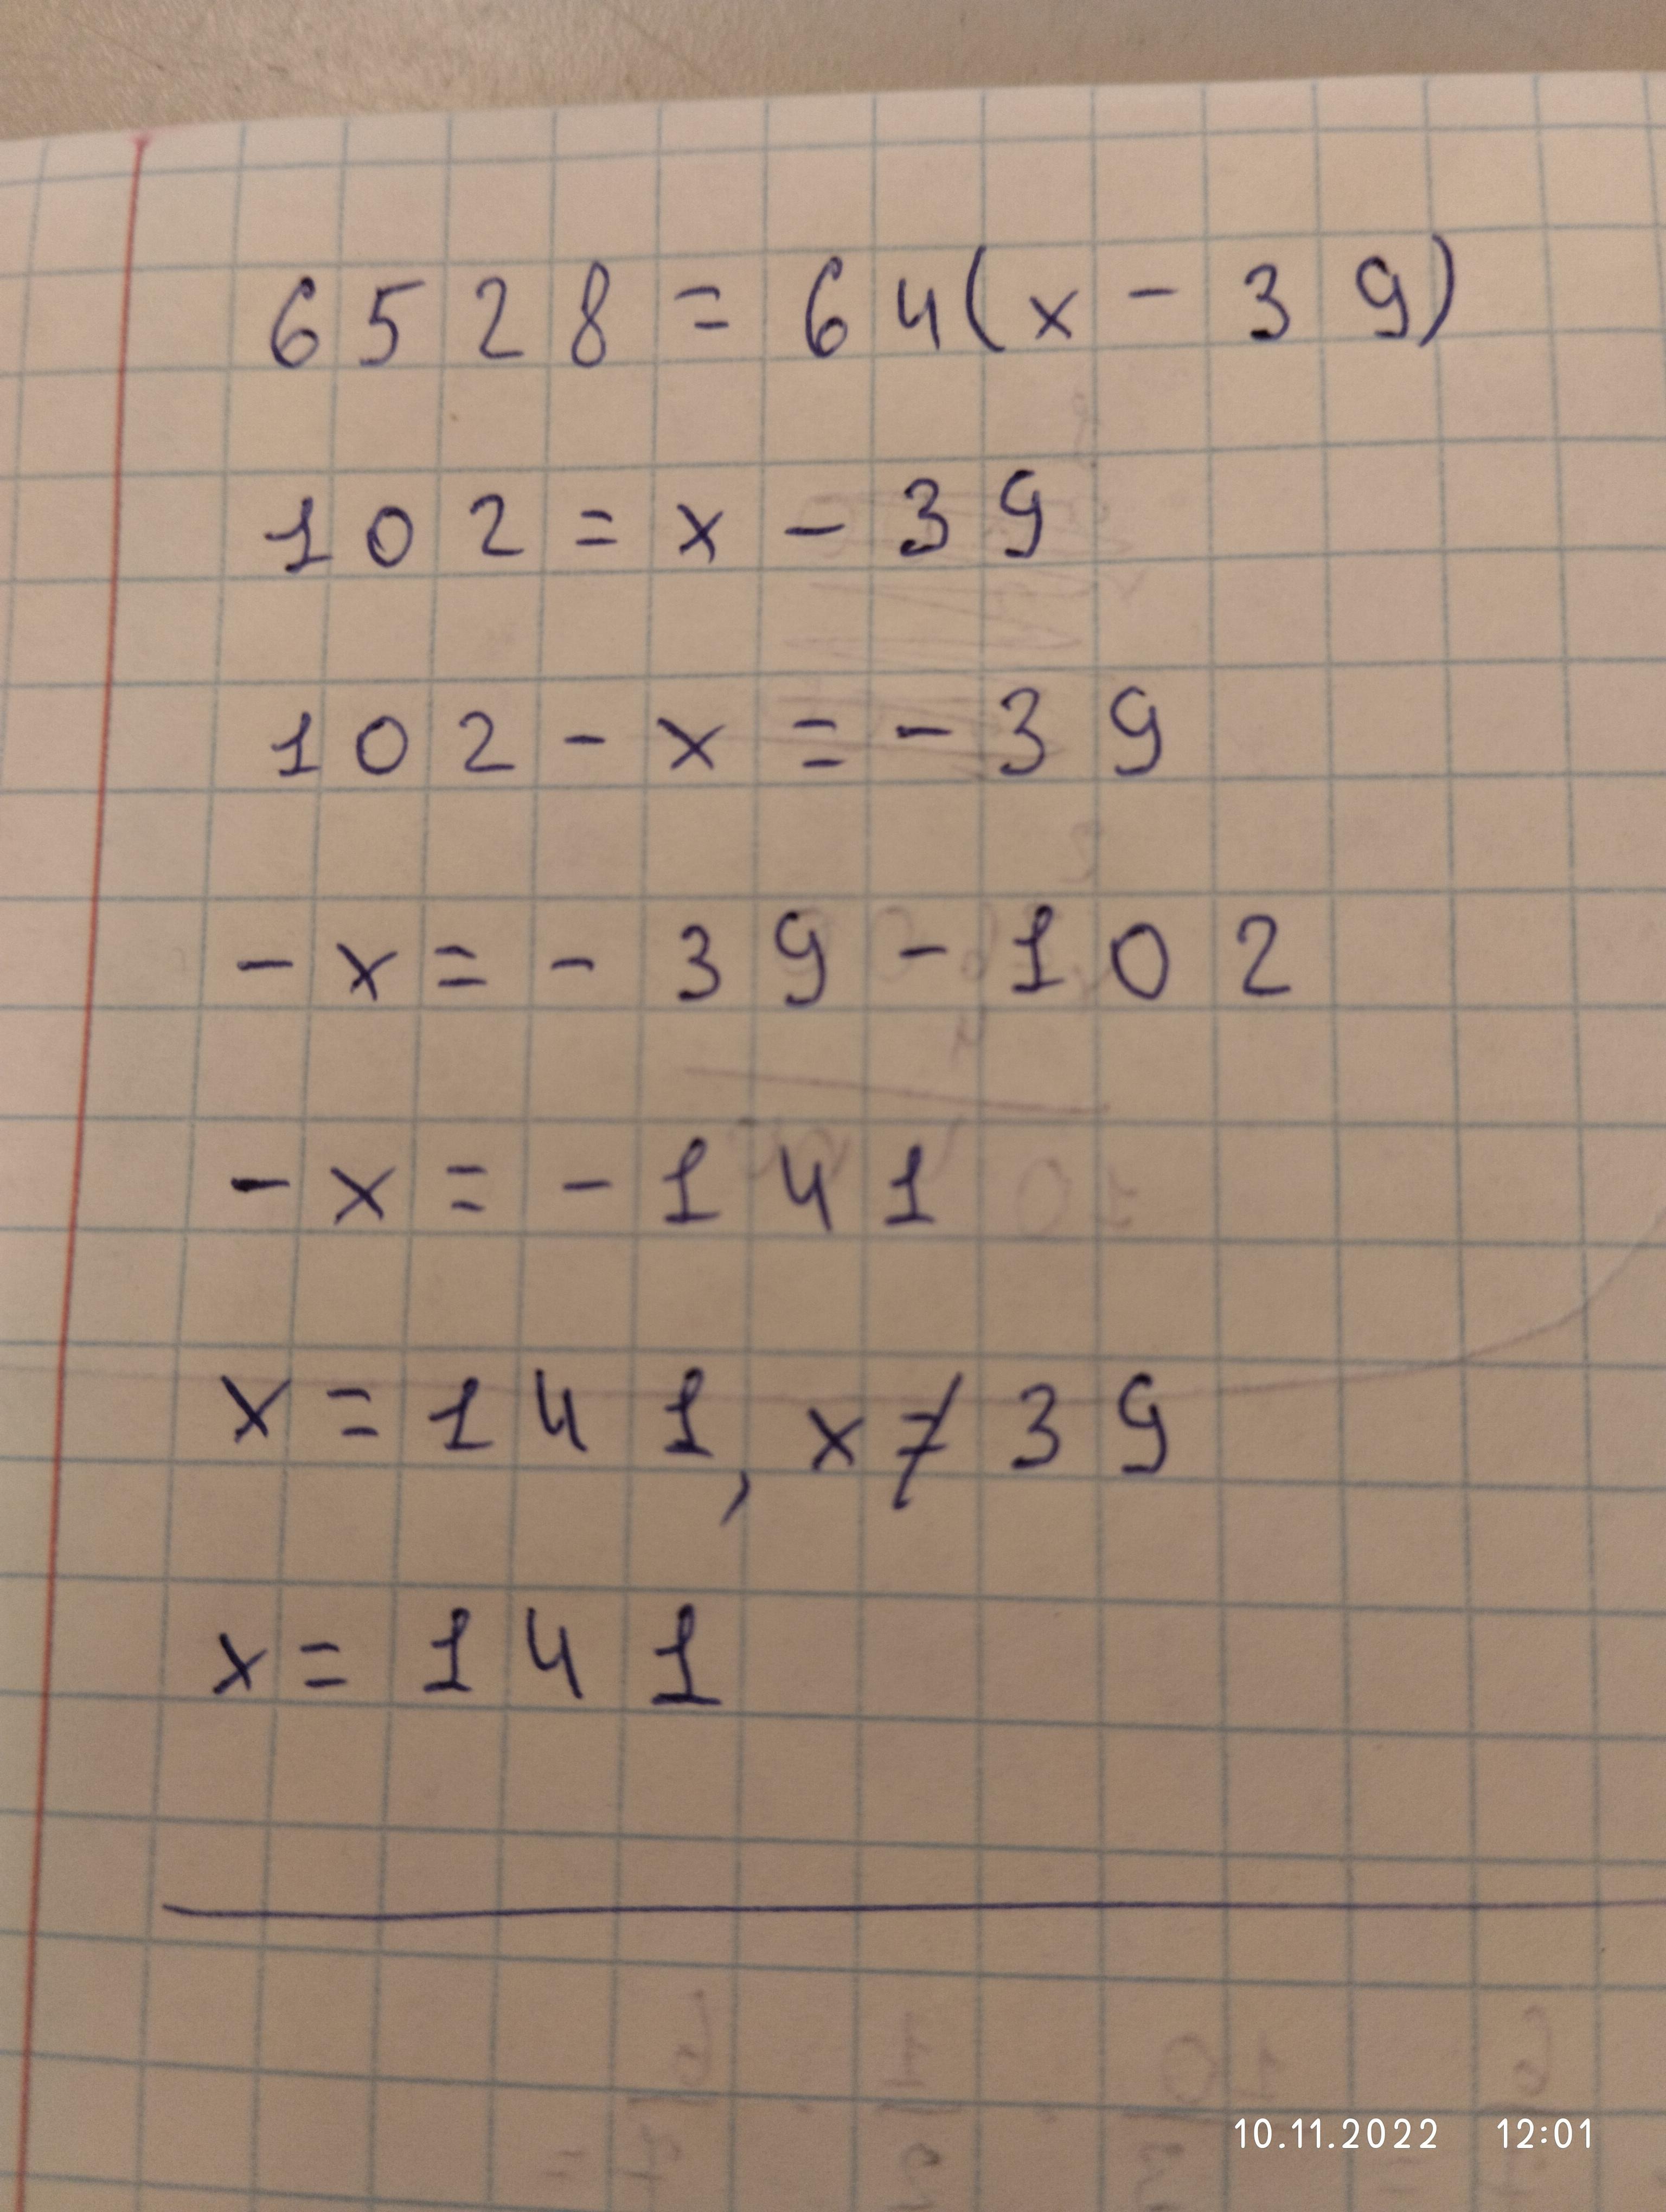 6528 = 64(x - 39)
102 = x - 39
102 - x = - 39
- x = - 39 - 102
- x = - 141
x = 141, x ≠ 39
x = 141
10.11.2022 12:01